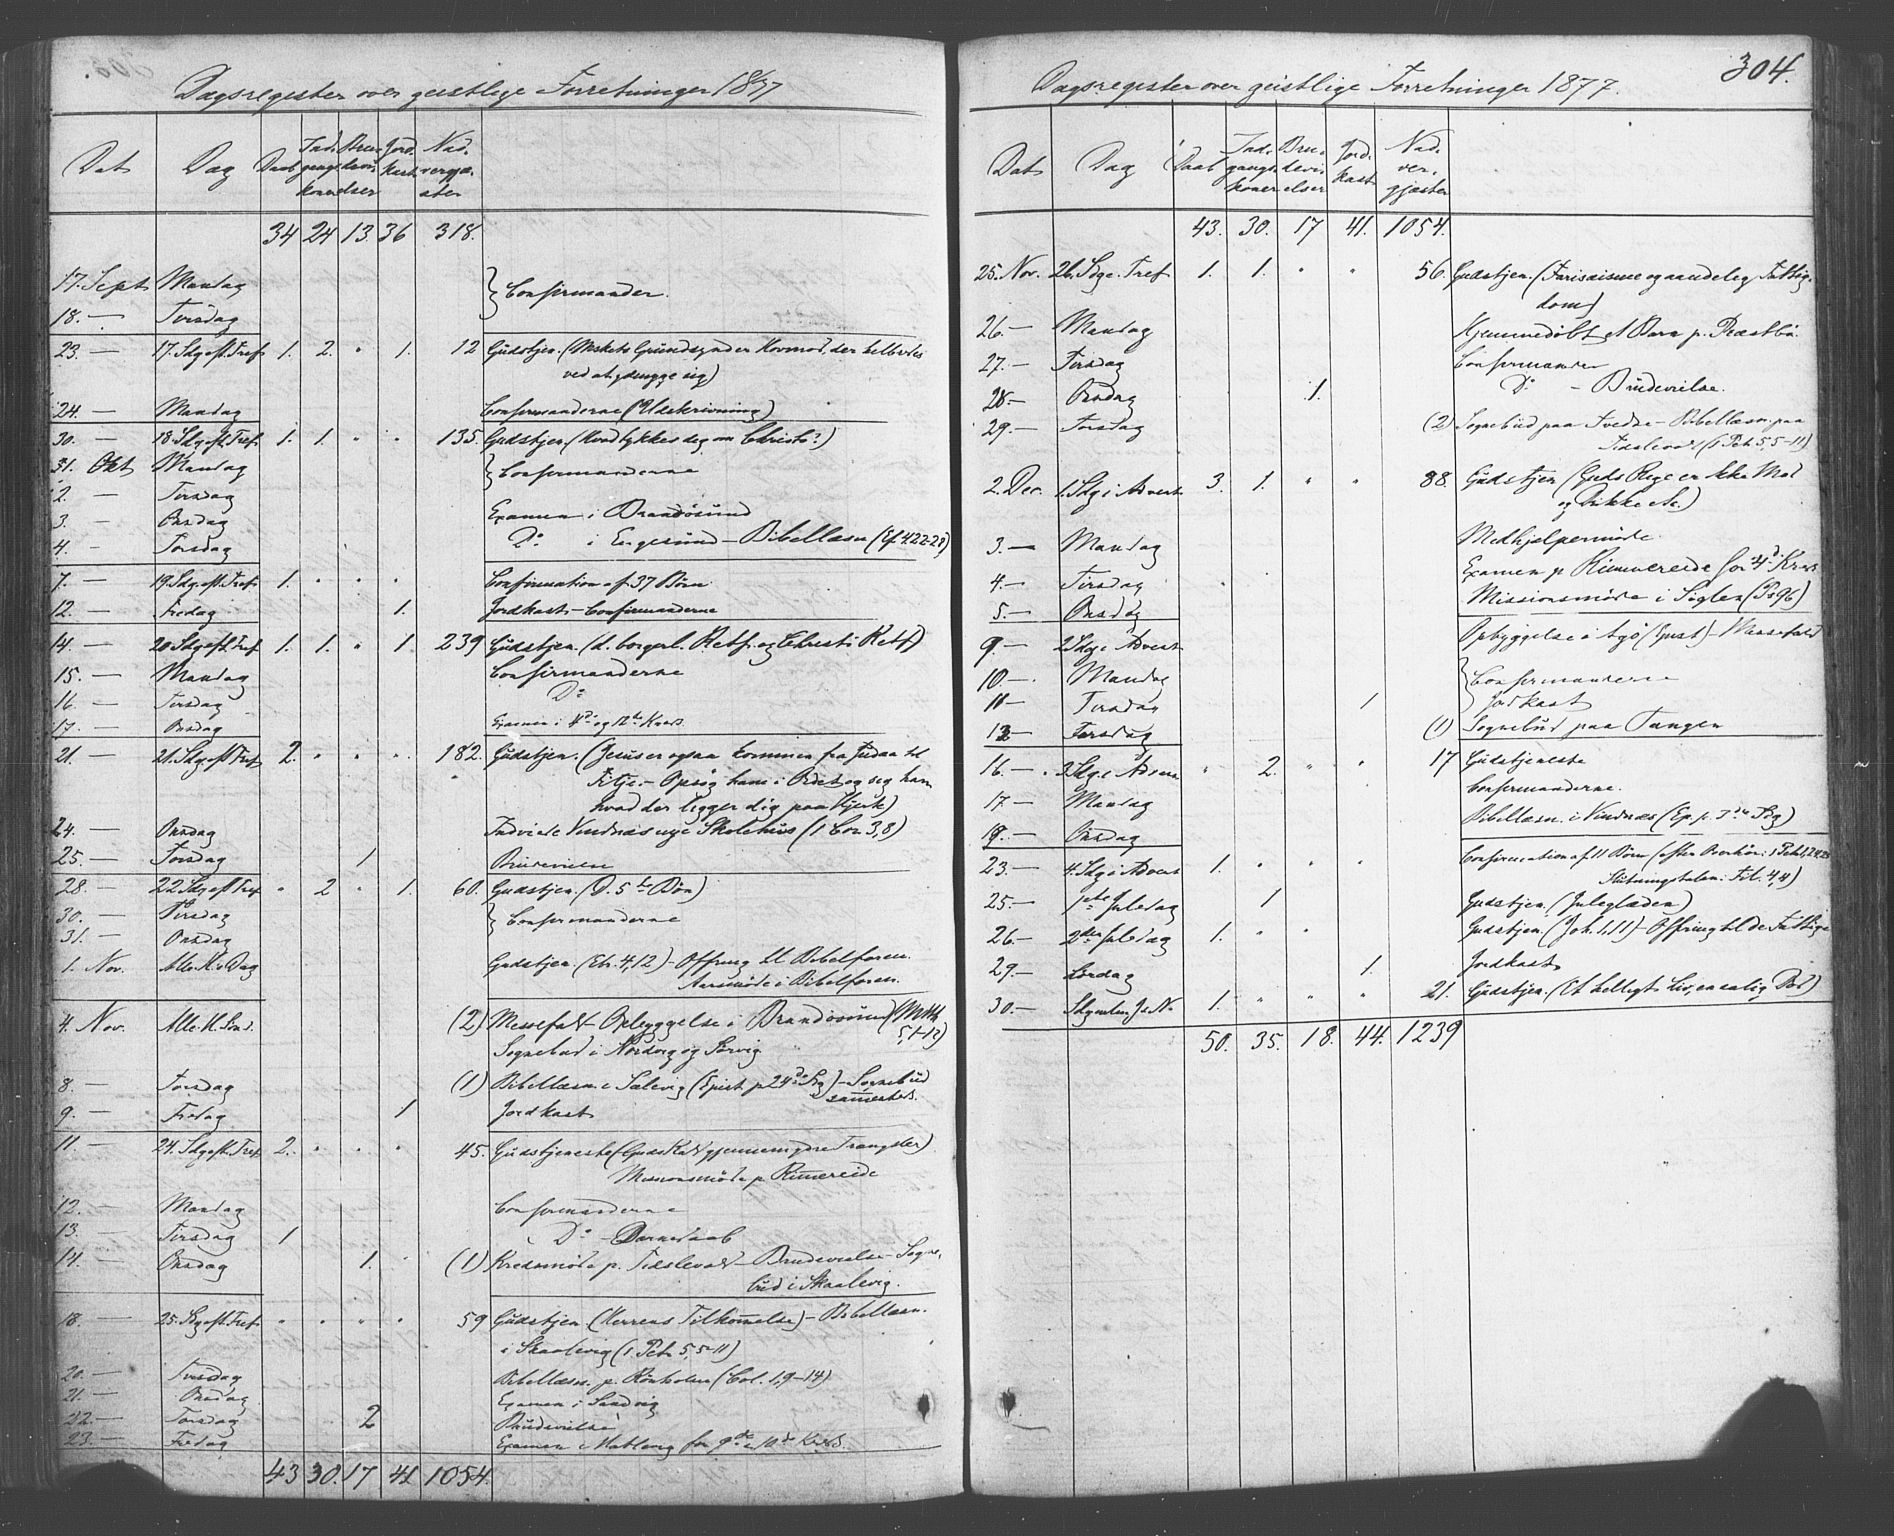 Dagsregister over geistlige Forretninger 1877
Dat Dag Daab Ind-gangs-koner Bru-devi-elser Jord-kast Nad-vergjæ-ster
34 24 13. 36 318.
17. Sept Mandag } Confirmander.
18. — Tirsdag
23. — 17. Sdg eft. Tref. 1. 2. " 1. 12 Gudstjen. (Mskets Grundsynd er Hovmod, der helbredes
ved at ydmyge sig)
24. — Mandag Confirmanderne (Udskrivning)
30. — 18. Sdg eft. Tref. 1. 1. " " 135. Gudstjen. (Hvad tykkes deg om Christo?)
1. Okt Mandag } Confirmanderne
2. — Tirsdag
3. — Onsdag Examen i Brandøsund
4. — Torsdag Do i Engesund — Bibellæsn (Ef. 4,22-28)
7. — 19. Sdg. eft. Tref. 1. " " " Confirmation af 37 Børn
12. — Fredag 1. Jordkast — Confirmanderne
14. — 20. Sdg eft. Tref. 1. 1. " 1 239 Gudstjen. (d. borgerl. Retf. og Christi Retf)
15. — Mandag Confirmanderne
16. — Tirsdag Do
17. — Onsdag Examen i og 12te Kreds.
21. — 21. Sdg eft Tref. 2. " " " 182. Gudstjen. (Jesus er ogsaa kommen fra Judæa til
Fitje. — Opsøg ham i Ordet og seg ham
hvad der ligger dig paa Hjerte)
24. — Onsdag Indviede Vindnæs nye Skolehus (1 Cor. 3,8)
25. — Torsdag 1 Brudevielse
28. — 22. Sdg eft Tref. " 2 " 1. 60. Gudstjen. (D. 5te Bøn)
30. — Tirsdag } Confirmanderne
31. — Onsdag
1. Nov. Alle H. Dag Gudstjen. (Eb. 4,12) — Offring til Bibelforen.
Aarsmøde i Bibelforen.
4. Nov. Alle H. Sønd. (2) Messefald — Opbyggelse i Brandøsund (Mtth
5,1-12)
Sognebud i Nordvig og Sørvig
8. — Torsdag (1) Bibellæsn. i Salevig (Epist. p 24de Sdg) — Sognebud
sammesteds.
9. — Fredag 1 Jordkast
11. — 24. Sdg eft. Tref. 2. " " " 45. Gudstjeneste (Guds Kald gjennem ydre Trængsler)
Missionsmøde p. Rimereide
12. — Mandag Confirmanderne
13. — Tirsdag 1 Do — Barnedaab
14. — Onsdag 1. (1) Kredsmøde p. Tidslevold — Brudevielse — Sogne-
bud i Skaalevig.
18. — 25. Sdg eft. Tref. " " " " 59 Gudstjen. (Herrens Tilkommelse) — Bibellæsn.
i Skaalevig (1. Petr 5,5-11)
20. — Tirsdag Bibellæsn. p. Rønholm (Col. 1,9-14)
21. — Onsdag Examen i Sandvig
22. — Torsdag 2 Brudevielse
23. — Fredag Examen i for 9de & 10de Kreds.
43 30. 17 41 1054.
Dagsregister over geistlige Forretninger 1877. 304.
Dat Dag Daab Ind-gangs-koner Bru-devi-elser Jord-kast Nad-ver-gjæster
43. 30. 17 41. 1054.
25. Nov. 26. Sdg e. Tref 1. 1. " " 56. Gudstjen. (Farisæisme og aandeleg Fattig-
dom)
26. — Mandag Hjemmedøbt et Barn p. Præstbø
27. — Tirsdag Confirmander
28. — Onsdag 1. Do — Brudevielse.
29. — Torsdag (2) Sognebud paa Tvedte — Bibellæsn. paa
Tidslevold (1 Petr. 5,5-11)
2. Dec. 1. Sdg i Advent 3. 1. " " 88. Gudstjen (Guds Rige er ikke Mad
og Drikke etc.)
3. — Mandag Medhjælpermøde.
4. — Tirsdag Examen p. Rimmereide for 4de Kreds
5. — Onsdag Missionsmøde i Siglen (Ps 96)
9. — 2 Sdg i Advent Opbyggelse i Agø — Messefald
10. — Mandag } Confirmanderne
11. — Tirsdag 1 Jordkast
13. — Torsdag (1) Sognebud paa Tangen
16. — 3 Sdg i Advent " 2. " " 17 Gudstjeneste
17. — Mandag Confirmanderne.
19. — Onsdag Bibellæsn. i Vindnæs (Ep. p. 3de Sdg)
23. — 4. Sdg i Advent 1. " " " Confirmation af 11 Børn (efter Overhør: 1 Petr. 1,24.25
Slutningstalen. Fil. 4,4)
25. — 1ste Juledag 1 Gudstjen. (Juleglæden)
26. — 2den Juledag 1. " " Gudstjen. (Joh. 1,11) — Offring til de Fattige
29. — Lørdag 1. Jordkast
30. — Sdg mellem J. & N. 1. " " " 21. Gudstjen. (Et helligt Liv, en salig Død)
50. 35. 18. 44. 1239